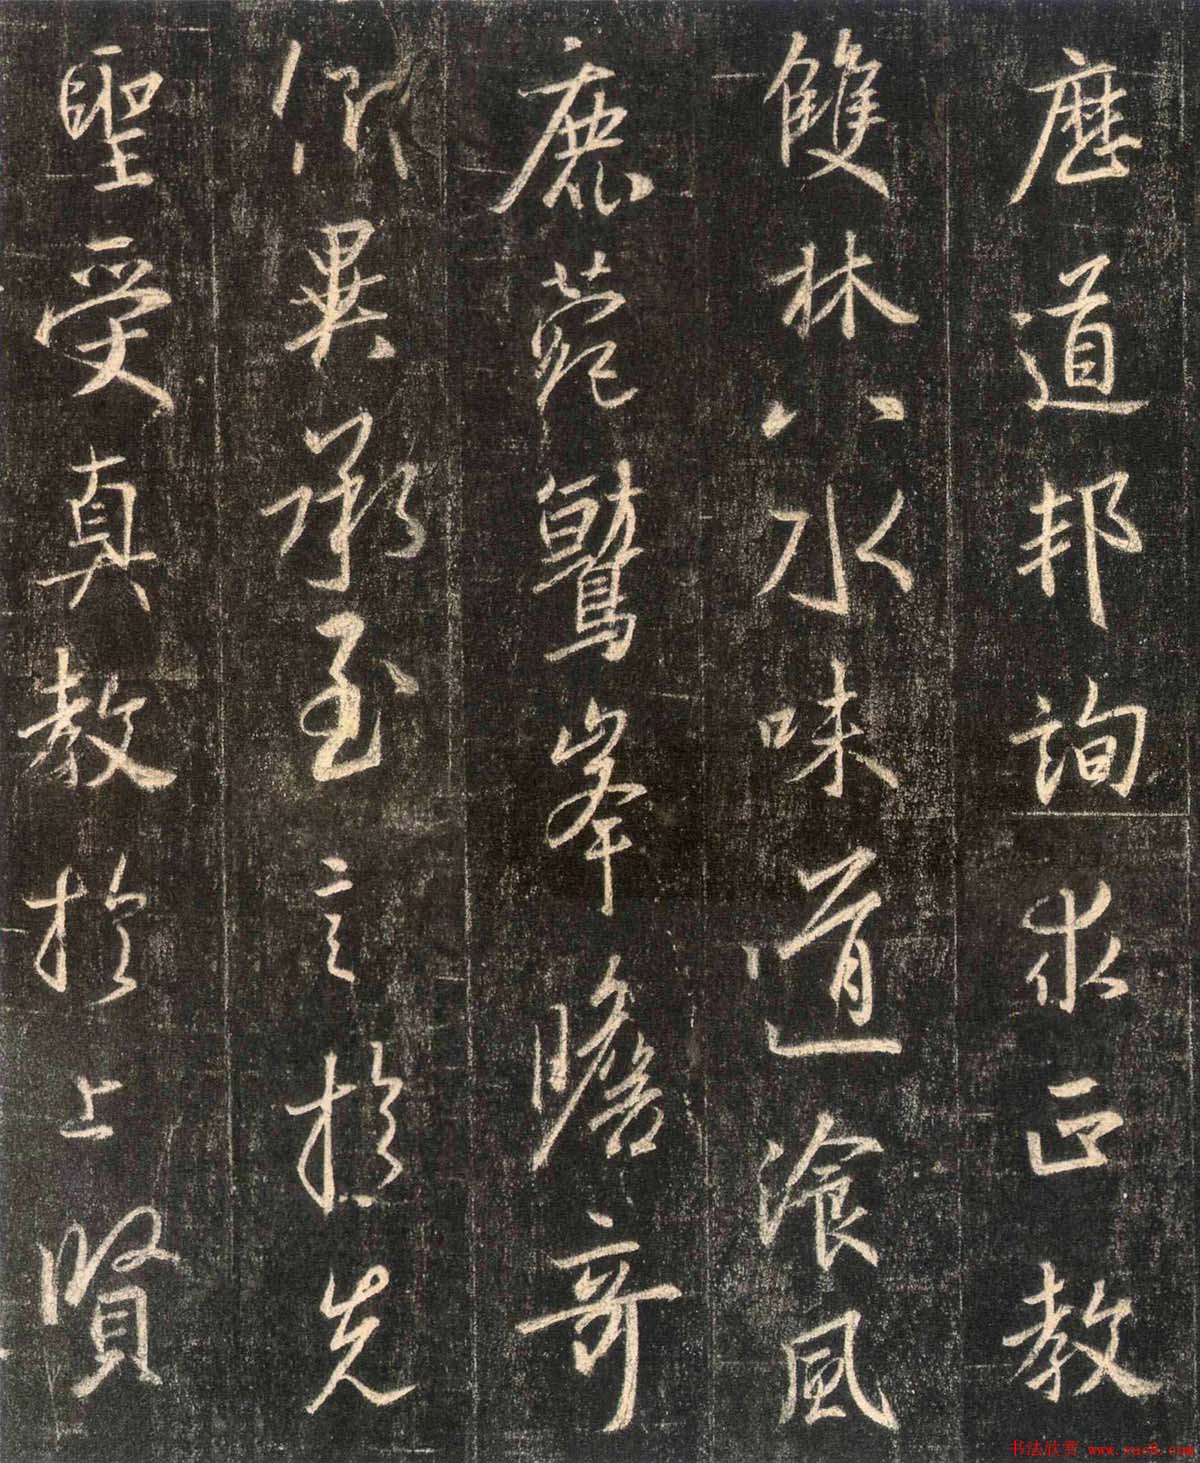 歷道邦詢求正教
雙林八水味道飡風
鹿菀鷲峯瞻奇
仰異承至言於先
聖受真教於上賢
书法欣赏 www.yac8.com